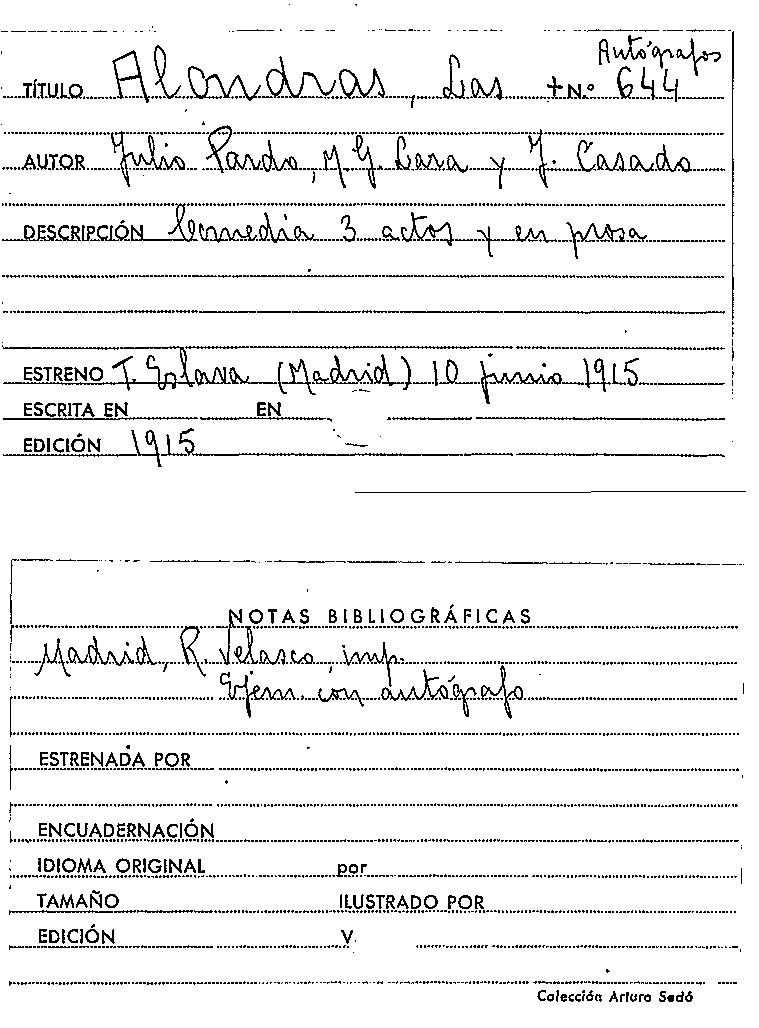 Autógrafos
TÍTULO Alondras, Las + N.º 644
AUTOR Julio Pardo, M. G. Lara y J. Casado
DESCRIPCIÓN Comedia 3 actos y en prosa
ESTRENO T. Eslava (Madrid) 10 junio 1915
ESCRITA EN EN
EDICIÓN 1915
NOTAS BIBLIOGRÁFICAS
Madrid, R. Velasco, imp.
Ejem. con autógrafo
ESTRENADA POR
ENCUADERNACIÓN
IDIOMA ORIGINAL por
TAMAÑO ILUSTRADO POR
EDICIÓN V.
Colección Arturo Sedó